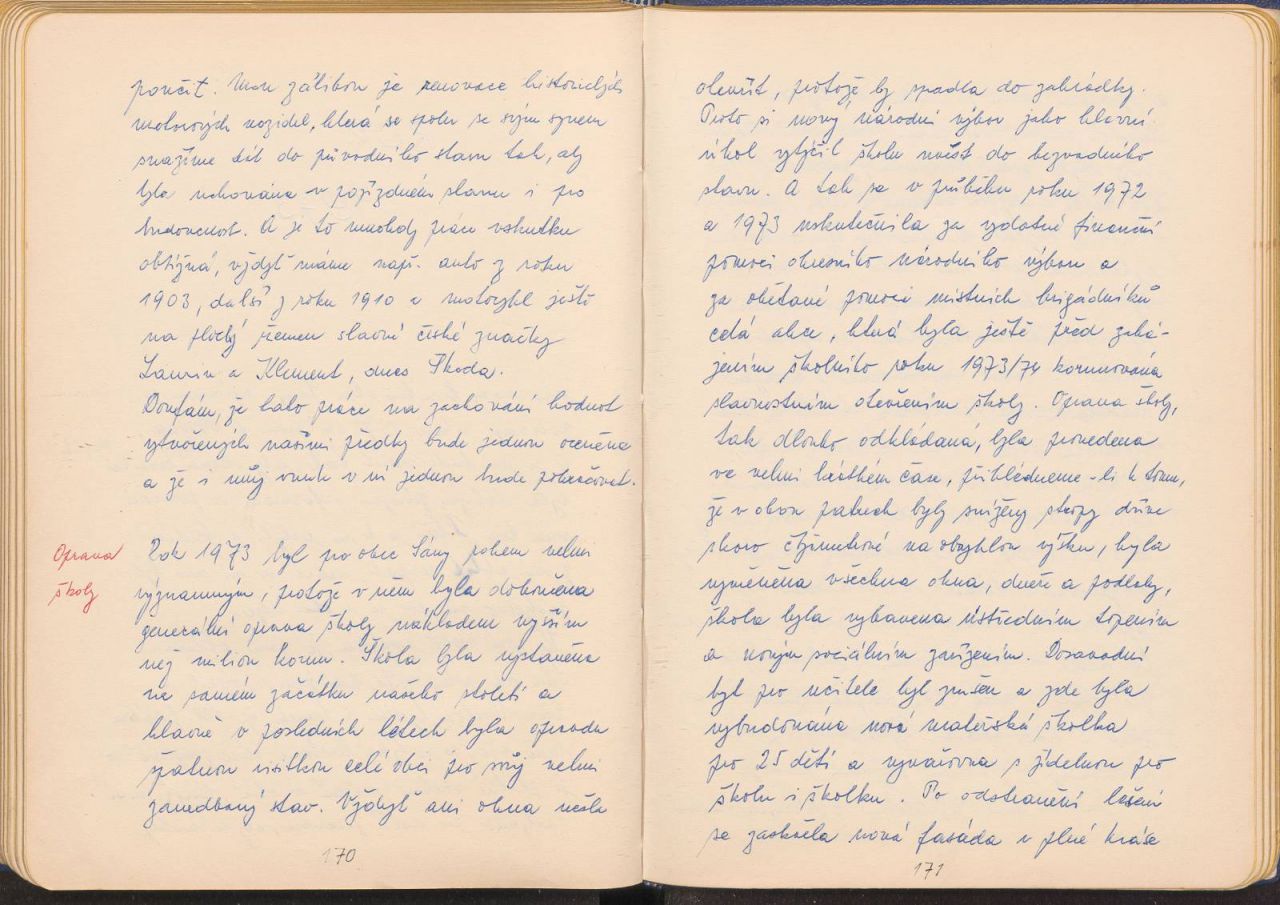 poučit. Mou zálibou je renovace historických
motorových vozidel, která se spolu se svým synem
snažíme dát do původního stavu tak, aby
byla uchována v pojízdném stavu i pro
budoucnost. A je to mnohdy práce vskutku
obtížná, vždyť máme např. auto z roku
1903, další z roku 1910 a motocykl ještě
na plochý řemen slavné české značky
Laurin a Klement, dnes Škoda.
Doufám, že tato práce na zachování hodnot
vytvořených našimi předky bude jednou oceněna
a že i můj vnuk v ní jednou bude pokračovat.
Oprava
školy
Rok 1973 byl pro obec Sány rokem velmi
významným, protože v něm byla dokončena
generální oprava školy nákladem vyšším
než milion korun. Škola byla vystavěna
na samém začátku našeho století a
hlavně v posledních létech byla opravdu
špatnou visitkou celé obci pro svůj velmi
zanedbaný stav. Vždyť ani okna nešla
170
otevřít, protože by spadla do zahrádky.
Proto si nový národní výbor jako hlavní
úkol vytýčil školu uvést do bezvadného
stavu. A tak se v průběhu roku 1972
a 1973 uskutečnila za vydatné finanční
pomoci okresního národního výboru a
za obětavé pomoci místních brigádníků
celá akce, která byla ještě před zahá-
jením školního roku 1973/74 korunována
slavnostním otevřením školy. Oprava školy,
tak dlouho odkládaná, byla provedena
ve velmi krátkém čase, přihlédneme-li k tomu,
že v obou patrech byly sníženy stropy dříve
skoro čtyřmetrové na obvyklou výšku, byla
vyměněna všechna okna, dveře a podlahy,
škola byla vybavena ústředním topením
a novým sociálním zařízením. Dosavadní
byt pro učitele byl zrušen a zde byla
vybudována nová mateřská školka
pro 25 dětí a vyvařovna s jídelnou pro
školu i školku. Po odstranění lešení
se zaskvěla nová fasáda v plné kráse
171